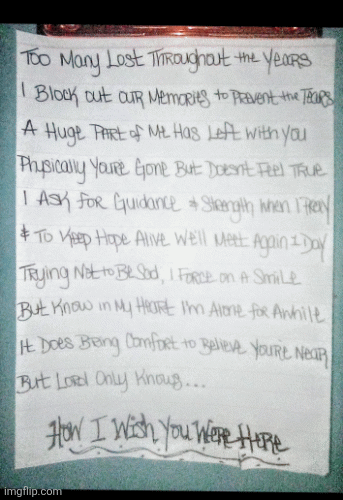 Too Many Lost Throughout the Years
I Block out our Memories to Prevent the Tears
A Huge Part of Me Has Left with you
Physically You're Gone But Doesnt Feel True
I Ask for Guidance & Strength when I Pray
& To Keep Hope Alive We'll Meet Again 1 Day
Trying Not to Be Sad, I Force on A Smile
But Know in My Heart I'm Alone for Awhile
It Does Bring Comfort to Believe You're Near
But Lord Only Knows...
How I Wish You Were Here
imgflip.com